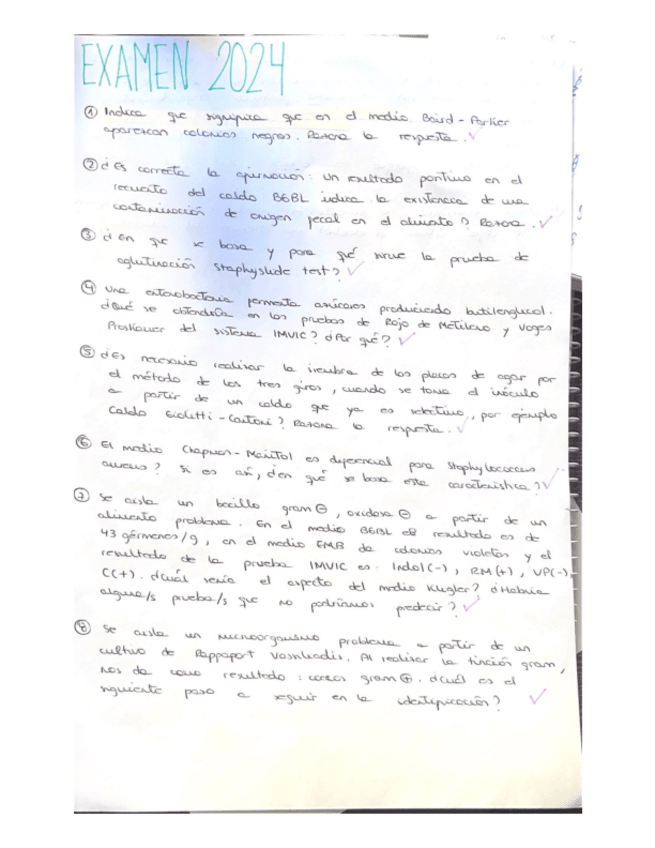 EXAMEN 2024
① Indica que significa que en el medio Baird-Parker
aparezcan colonias negras. Razona la respuesta.
② ¿Es correcta la afirmación: Un resultado positivo en el
recuento del caldo BGBL indica la existencia de una
contaminación de origen fecal en el alimento? Razona.
③ ¿En que se basa y para qué sirve la prueba de
aglutinación Staphyslide test?
④ Una enterobacteria fermenta azúcares produciendo butilenglicol.
¿Qué se obtendría en las pruebas de Rojo de Metileno y Voges
Proskauer del sistema IMVIC? ¿Por qué?
⑤ ¿Es necesario realizar la siembra de las placas de agar por
el método de los tres giros, cuando se toma el inóculo
a partir de un caldo que ya es selectivo, por ejemplo
Caldo Giolitti-Cantoni? Razona la respuesta.
⑥ El medio Chapman-Manitol es diferencial para Staphylococcus
aureus? Si es así, ¿en qué se basa esta característica?
⑦ Se aisla un bacilo gram ⊖, oxidasa ⊖ a partir de un
alimento problema. En el medio BGBL el resultado es de
43 gérmenes/g, en el medio EMB da colonias violetas y el
resultado de la prueba IMVIC es: Indol(-), RM(+), VP(-),
C(+). ¿Cuál sería el aspecto del medio Kligler? ¿Habría
alguna/s prueba/s que no podríamos predecir?
⑧ Se aisla un microorganismo problema a partir de un
cultivo de Rappaport Vassiliadis. Al realizar la tinción gram,
nos da como resultado: cocos gram ⊕. ¿Cuál es el
siguiente paso a seguir en la identificación?